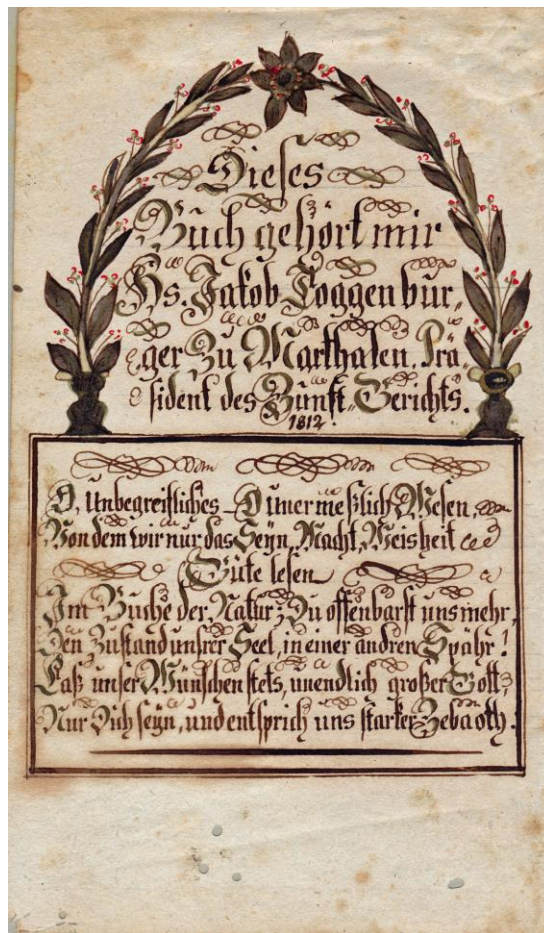 Dieses
Buch gehört mir
Hs. Jakob Toggenbur„
ger Zu Marthalen. Prä„
sident des Zunft„Gerichts.
1812.
O, Unbegreifliches – O Unermeßlich Wesen,
Von dem wir nur das Seyn, Macht, Weisheit
Güte lesen
Im Buche der Natur; Du offenbarst uns mehr,
Den Zustand unsrer Seel, in einer andren Spähr!
Laß unser Wünschen stets, unendlich großer Gott,
Nur Dich seyn, und entsprich uns starker Zebaoth.